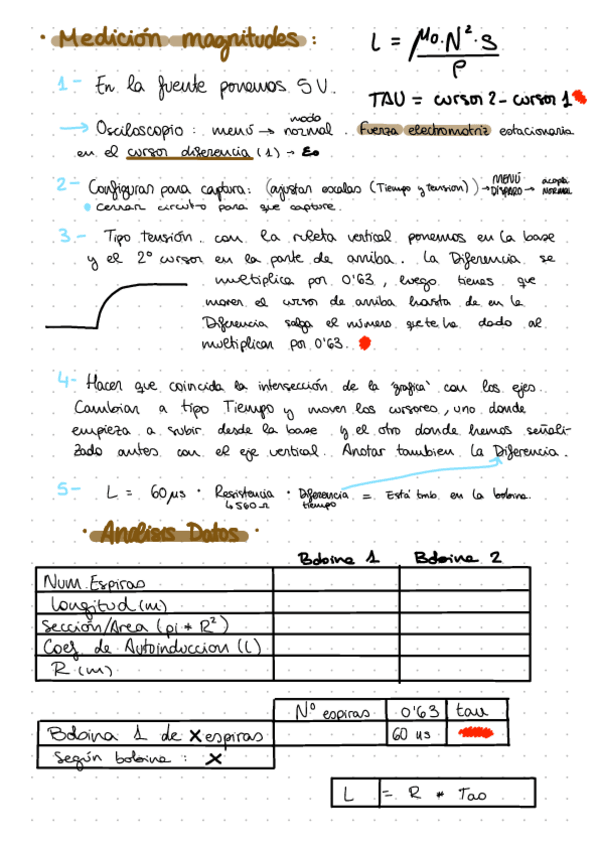 · Medición magnitudes :
L = μ₀·N²·S / ρ
1- En la fuente ponemos 5V.
TAU = cursor 2 - cursor 1
→ Osciloscopio : menú → modo normal . Fuerza electromotriz estacionaria
en el cursor diferencia (1) → ε₀
2- Configurar para captura: (ajustar escalas (Tiempo y tension)) → MENÚ DISPARO → acoplo NORMAL
• cerrar circuito para que capture.
3.- Tipo tensión. con la ruleta vertical ponemos en la base
y el 2º cursor en la parte de arriba. La Diferencia se
multiplica por 0'63, luego tienes que
mover el cursor de arriba hasta de en la
Diferencia salga el número que te ha dado al
multiplicar por 0'63.
4- Hacer que coincida la intersección de la "grafica" con los ejes.
Cambiar a tipo Tiempo y mover los cursores, uno donde
empieza a subir desde la base y el otro donde hemos señali-
zado antes con el eje vertical. Anotar tambien la Diferencia.
5- L = 60 μs · Resistencia · Diferencia = Está tmb en la bobina.
4560 Ω tiempo
· Analisis Datos ·
Bobina 1 Bobina 2
Num. Espiras
Longitud (m)
Sección/Area (pi * R²)
Coef de Autoinduccion (L)
R (m)
Nº espiras 0'63 tau
Bobina 1 de X espiras 60 us
Según bobina : X
L = R * Tao